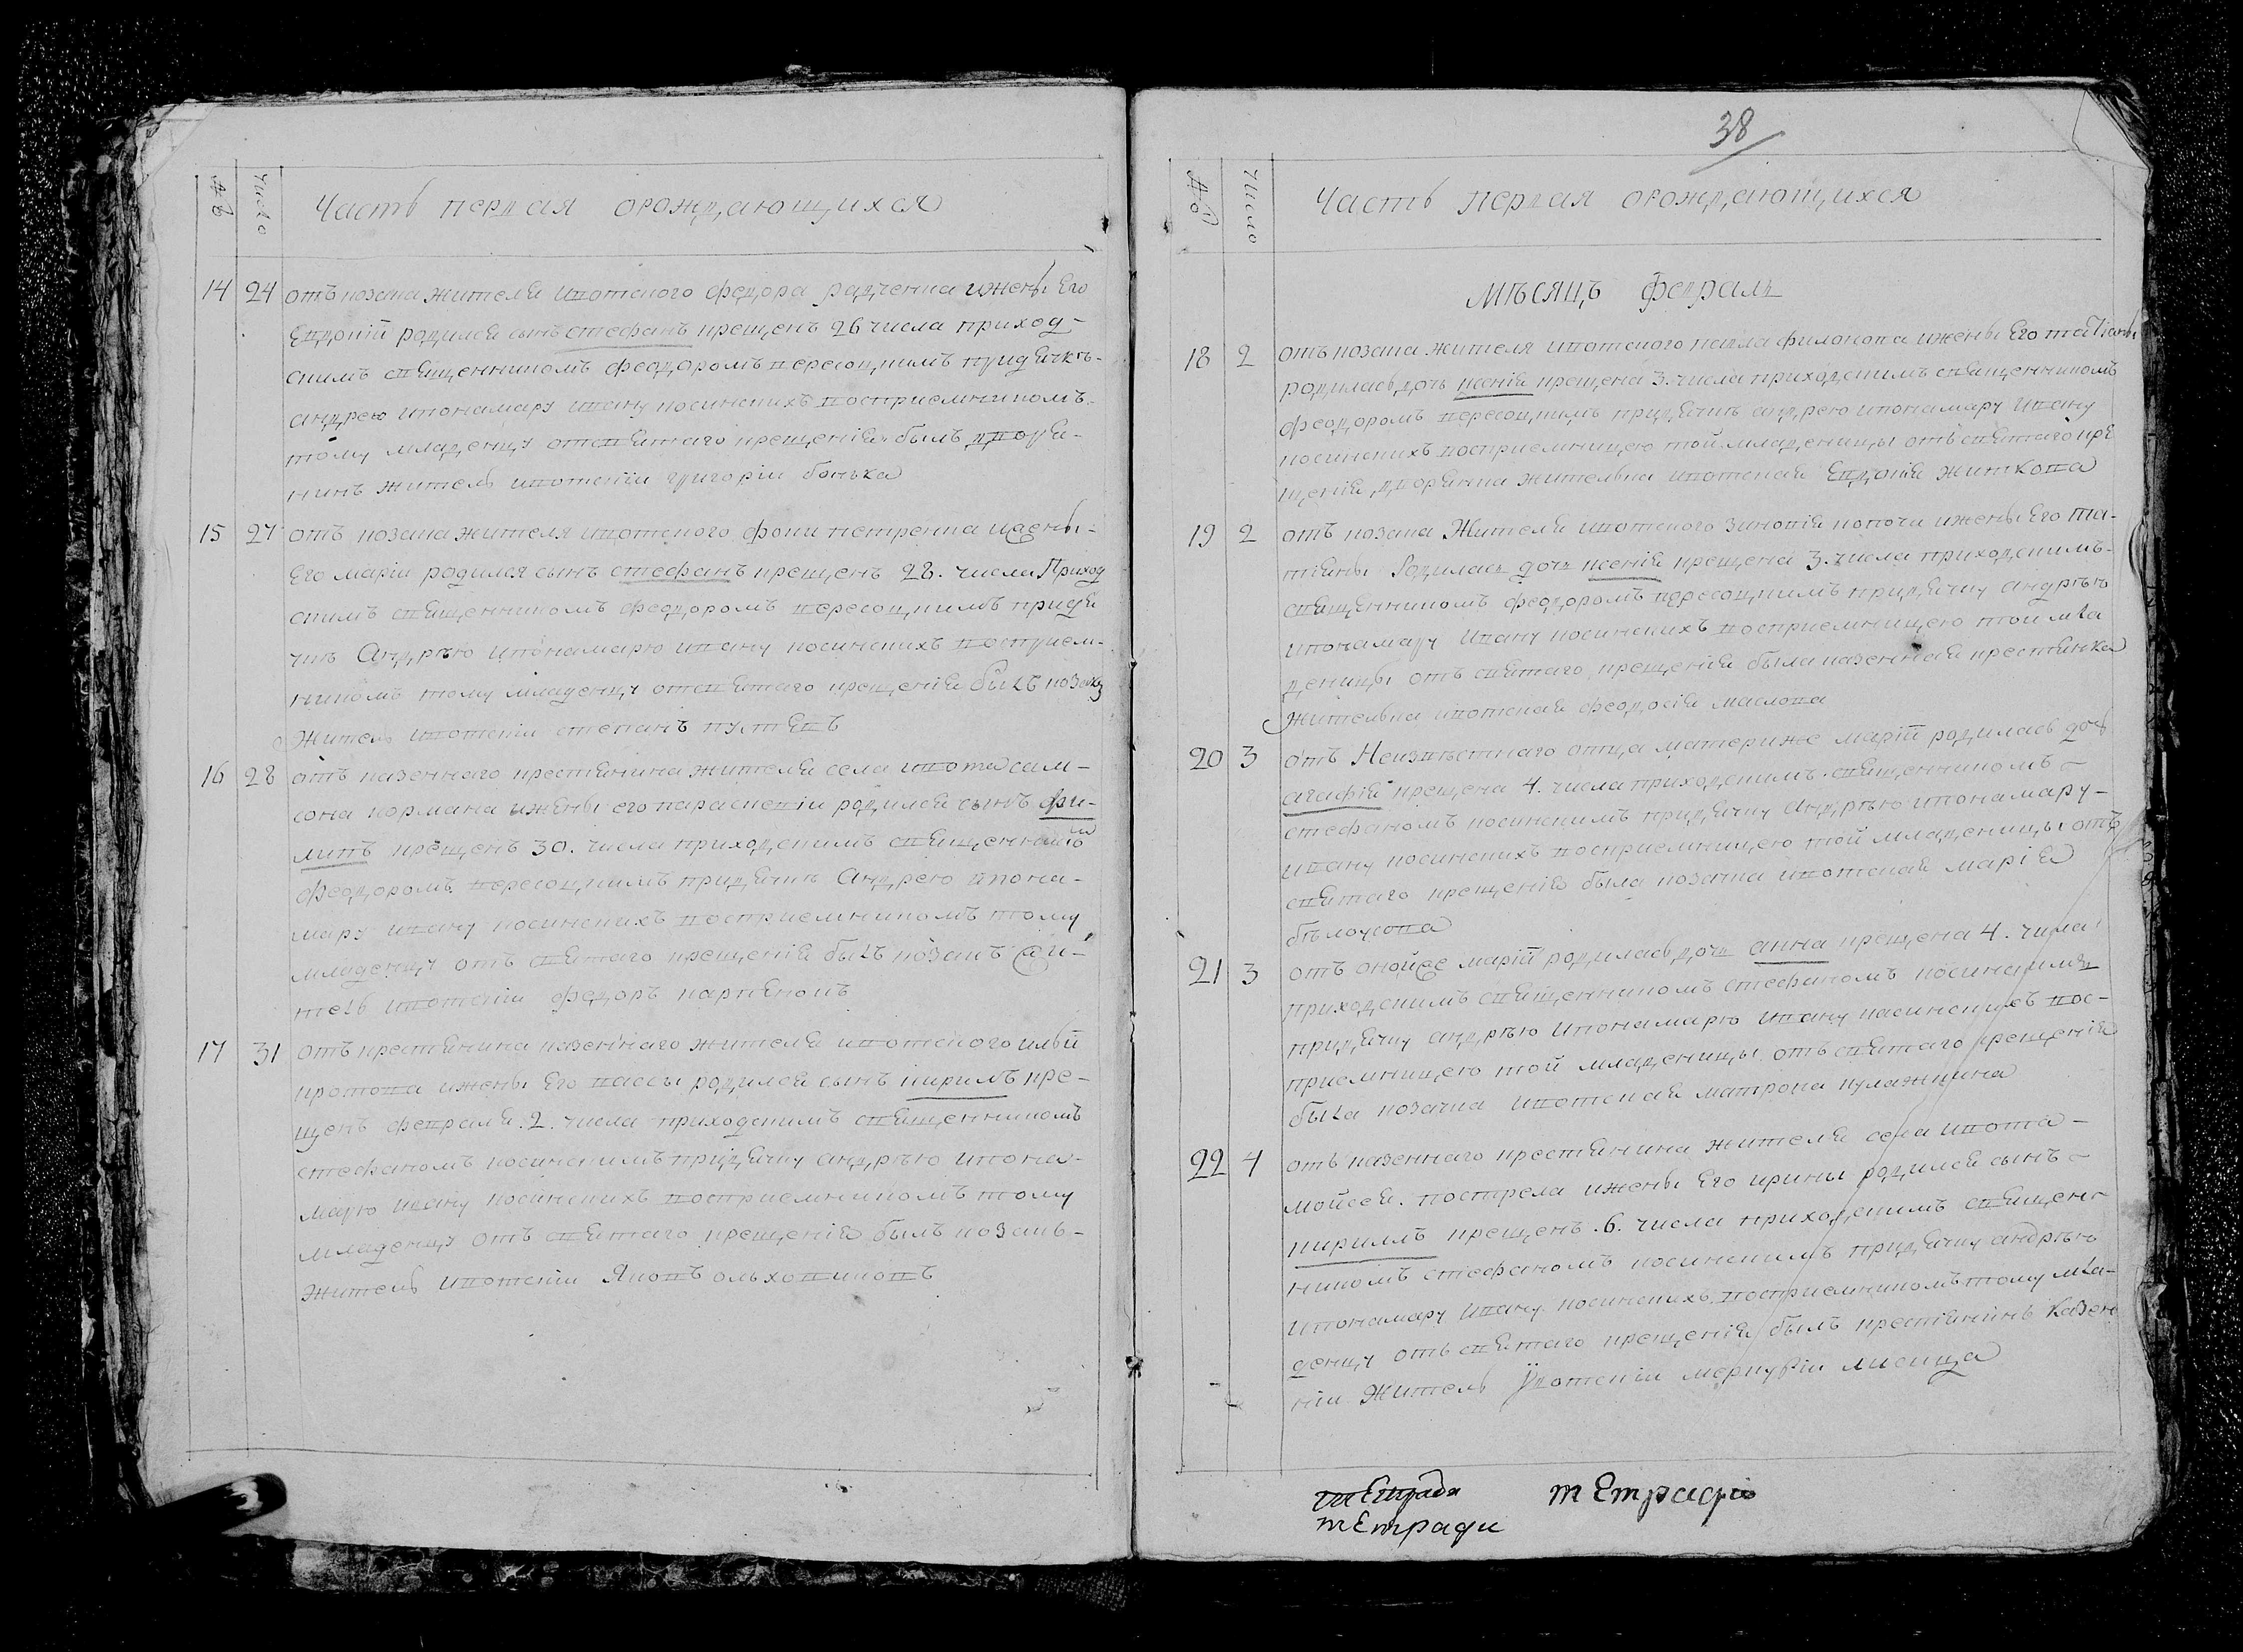 №
Число
Часть первая орождающихся
14 24 отъ козака жителя ивотского федора радченка ижены его
Евдокій родился сынъ стефанъ крещенъ 26 числа приход-
скимъ священникомъ феодоромъ пересоцкимъ придячкѣ-
андрею ипонамару ивану косинскихъ восприемникомъ-
тому младенцу отсвятаго крещенія былъ дворя-
нинъ житель ивотскіи григоріи бонька
15 27 отъ козака жителя ивотского фоки петренка ижены-
Его маріи родился сынъ стефанъ крещенъ 28. числа Приход
скимъ священникомъ феодоромъ пересоцкимъ придя
чкѣ Андрѣю ипонамарю ивану косинскихъ восприем-
никомъ тому младенцу отсвятаго крещенія былъ козакъ
Житель ивотскіи степанъ
16 28 отъ казеннаго крестянина жителя села ивота сам-
сона кормана ижены его параскевіи родился сынъ фи-
липъ крещенъ 30. числа приходскимъ священникомъ
феодоромъ пересоцкимъ придячкѣ Андрею ипона-
мару ивану косинскихъ восприемникомъ тому
младенцу отъ святаго крещенія былъ козакъ жи-
тель ивотскіи федоръ карпековъ
17 31 отъ крестянина казеннаго жителя ивотского ильи
кротова ижены Его вассы родился сынъ кирилъ кре-
щенъ февраля. 2. числа приходскимъ священникомъ
стефаномъ косинскимъ придячку андрѣю ипона-
марю ивану косинскихъ восприемникомъ тому
младенцу отъ святаго крещенія былъ козакъ-
житель ивотскіи Яковъ ольховиковъ
38
№
Число
Часть первая орождающихся
МѢСЯЦЪ февраль
18 2 отъ козака жителя ивотского павла филонова ижены Его татіаны
родилась дочь ксенія крещена 3. числа приходскимъ священникомъ
феодоромъ пересоцкимъ придячкѣ андрею ипонамару ивану
косинскихъ восприемницею той младеницы отъ святаго кре
щенія дворянка жителька ивотская Евдокія житкова
19 2 отъ козака Жителя ивотского зиновія копочи ижены Его та-
тіяны Родилась дочь ксенія крещена 3. числа приходскимъ-
священникомъ феодоромъ пересоцкимъ придячку андрѣю
ипонамару ивану косинскихъ восприемницею той мла
деницы отъ святаго крещенія была казенная крестянка
Жителька ивотская феодосія маслова
20 3 отъ Неизвѣстнаго отца материже маріи родилась дочь
агафія крещена 4. числа приходскимъ священникомъ-
стефаномъ косинскимъ придячку Андрѣю ипонамару-
ивану косинскихъ восприемницею той младеницы отъ
святаго крещенія была козачка ивотская марія
бѣлоусова
21 3 отъ онойже маріи родилась дочь анна крещена 4. числа
приходскимъ священникомъ стефаномъ косинскимъ
придячку андрѣю ипонамарю ивану касинскихъ вос-
приемницею той младеницы отъ святаго крещенія
была козачка ивотская матрона кулажкина
22 4 отъ казеннаго крестянина жителя села ивота-
мойсея. пострела ижены Его ирины родился сынъ-
кириллъ крещенъ .6. числа приходскимъ священ-
никомъ стефаномъ косинскимъ придячку андрѣю
ипонамару ивану косинскихъ восприемникомъ тому мла-
денцу отъ святаго крещенія былъ крестіянинъ казен
ніи Житель ивотскіи меркуріи лисица
тЕтради тЕтради